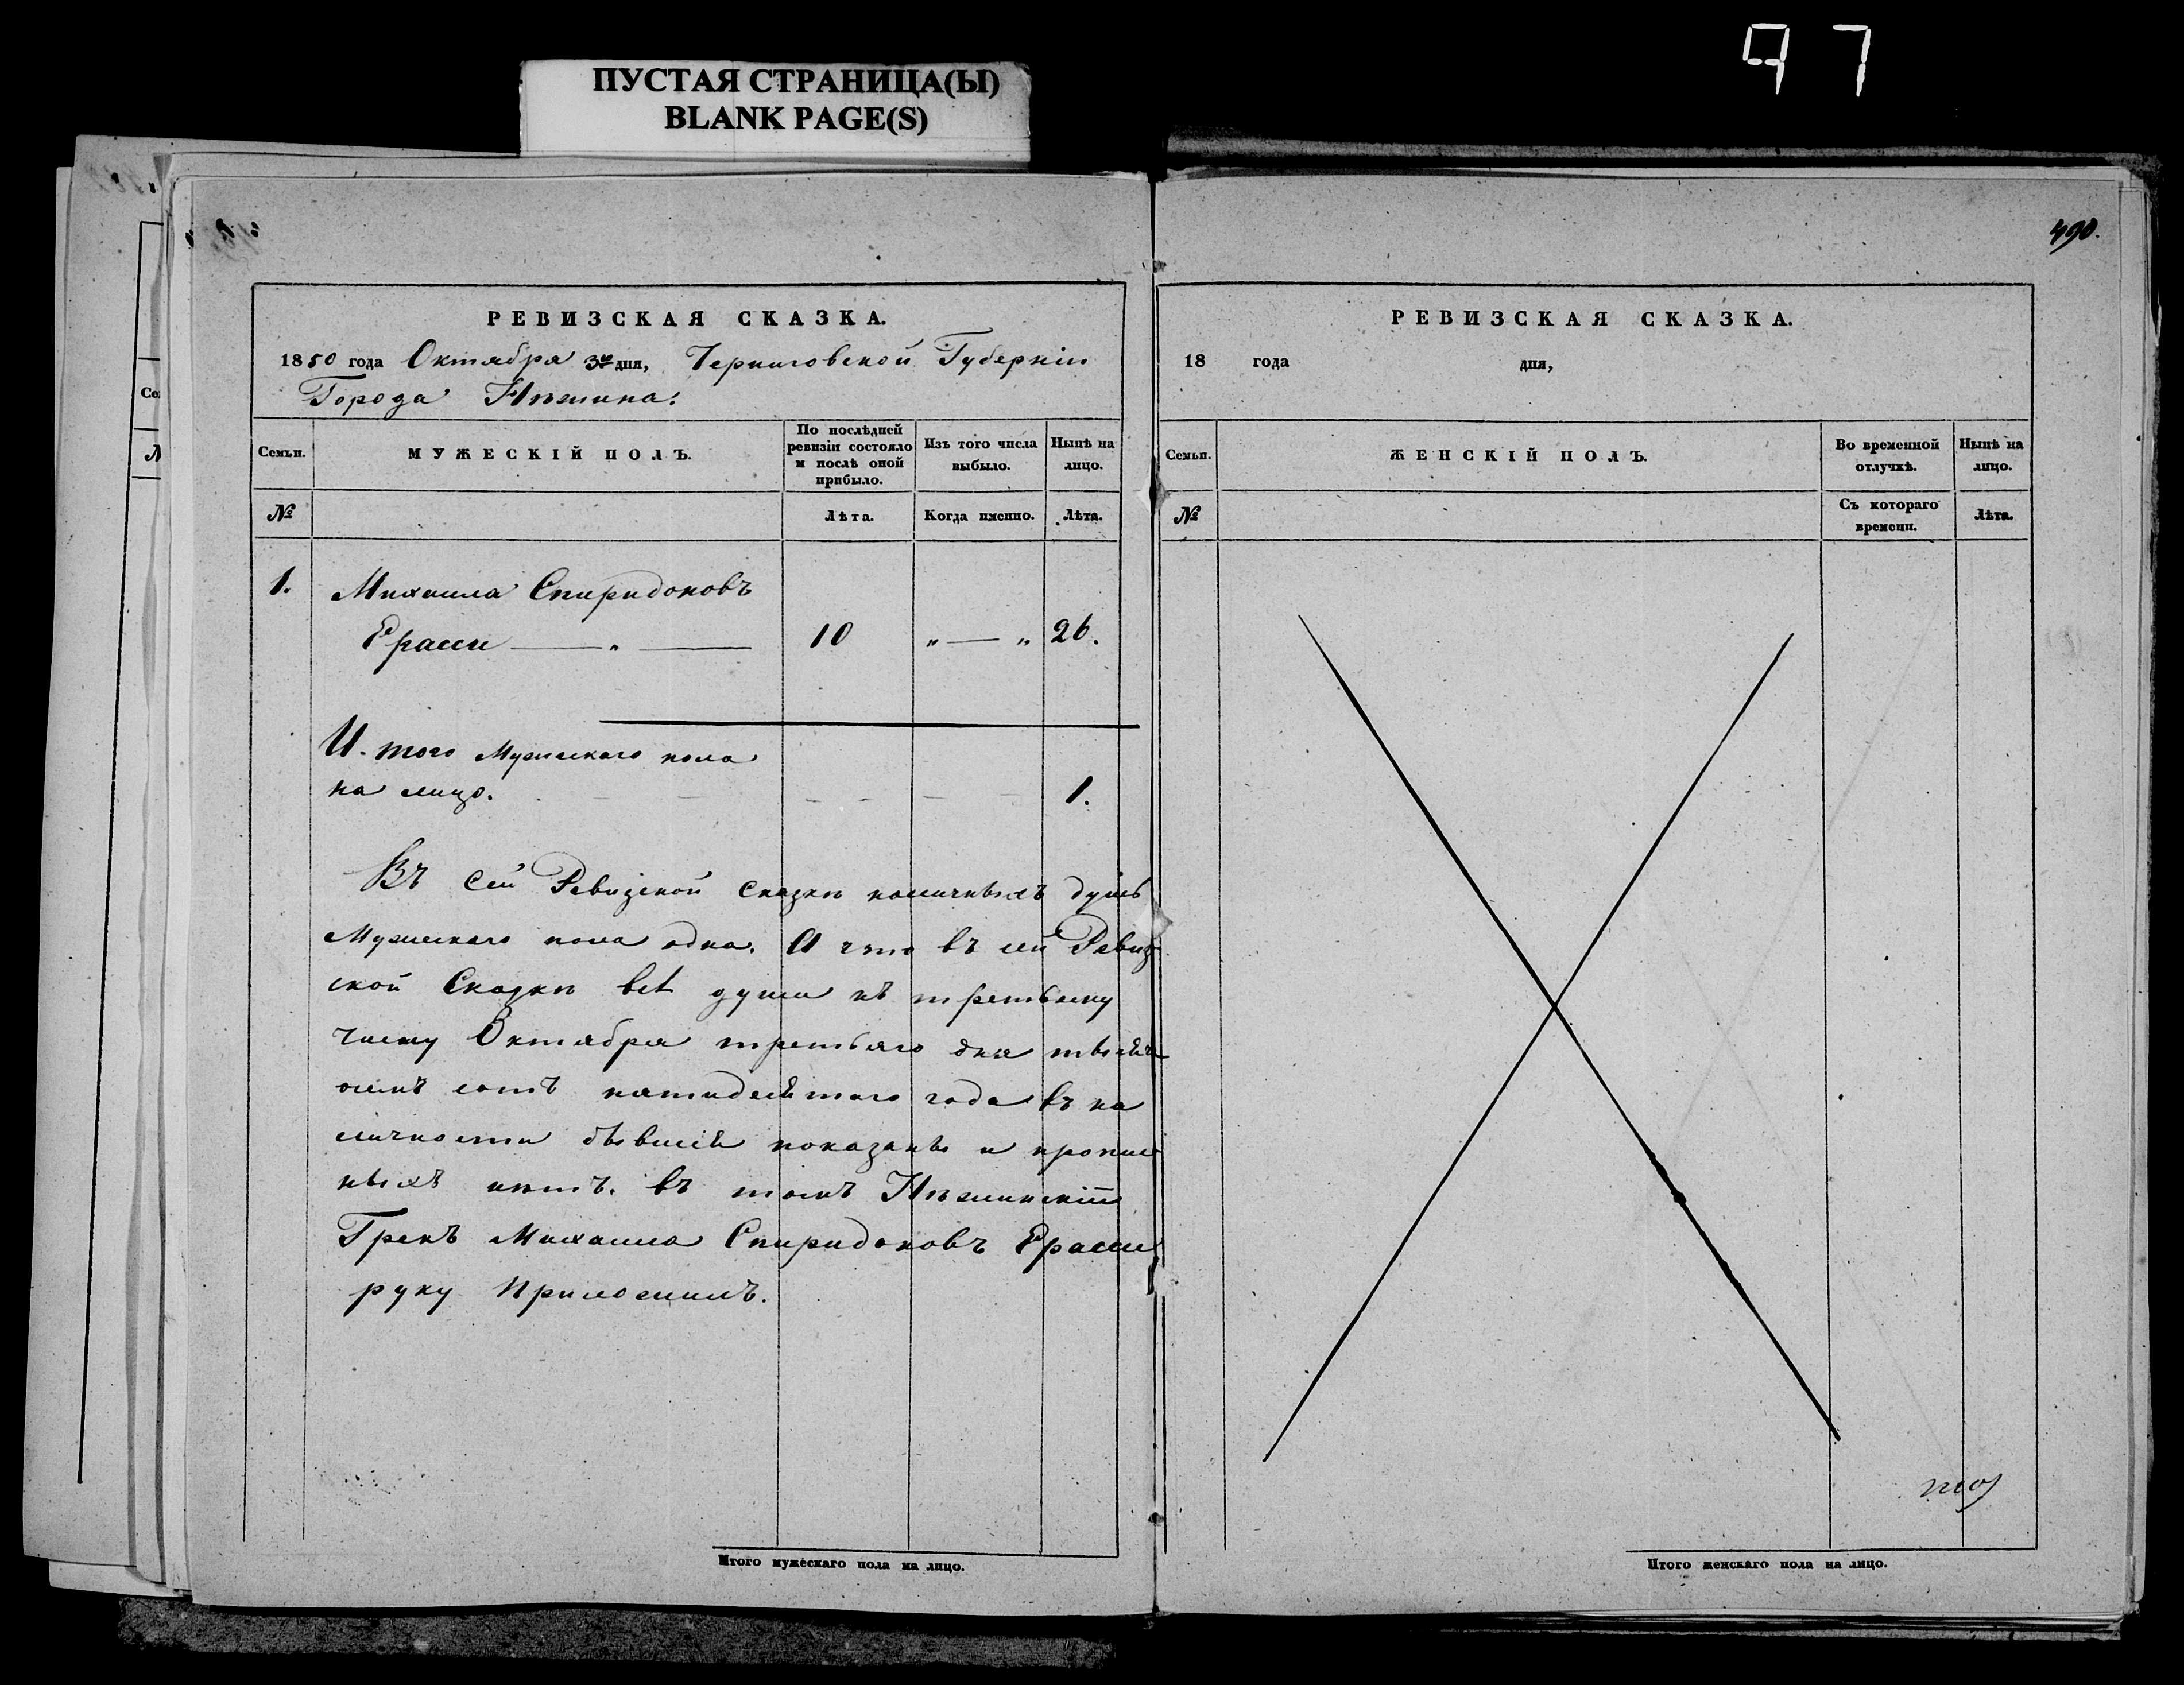 ПУСТАЯ СТРАНИЦА(Ы)
BLANK PAGE(S)
97
490.
РЕВИЗСКАЯ СКАЗКА.
1850 года Октября 3го дня, Черниговской Губерніи
Города Нѣжина.
Семьи.
МУЖЕСКІЙ ПОЛЪ.
По послѣдней ревизіи состояло и послѣ оной прибыло.
Изъ того числа выбыло.
Нынѣ на лицо.
№
Лѣта.
Когда именно.
Лѣта.
1. Михаила Спиридоновъ
Ерасси — „ — 10 „ — „ 26.
И того Мужескаго пола
на лицо. 1.
Въ сей Ревизской Сказкѣ наличныхъ душъ
Мужескаго пола одна. А что въ сей Ревиз
ской Сказкѣ всѣ души къ третьему
числу Октября третьяго дня тысяча
осмъ сотъ пятидесятого года въ на
личности бывшія показаны и пропис
ныхъ нѣтъ. въ томъ Нѣжинскій
Грекъ Михаила Спиридоновъ Ерасси
руку приложилъ.
Итого мужескаго пола на лицо.
РЕВИЗСКАЯ СКАЗКА.
18 года дня,
Семьи.
ЖЕНСКІЙ ПОЛЪ.
Во временной отлучкѣ.
Нынѣ на лицо.
№
Съ котораго времени.
Лѣта.
Итого женскаго пола на лицо.